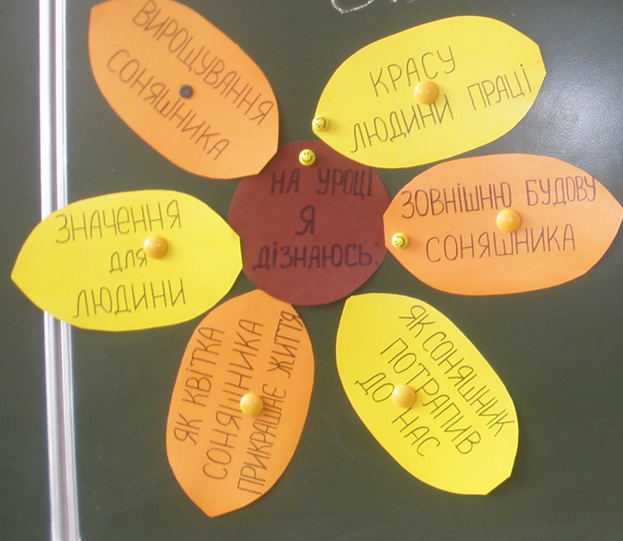 НА УРОЦІ
Я
ДІЗНАЮСЬ:
ВИРОЩУВАННЯ
СОНЯШНИКА
КРАСУ
ЛЮДИНИ ПРАЦІ
ЗОВНІШНЮ БУДОВУ
СОНЯШНИКА
ЯК СОНЯШНИК
ПОТРАПИВ
ДО НАС
ЯК КВІТКА
СОНЯШНИКА
ПРИКРАШАЄ ЖИТТЯ
ЗНАЧЕННЯ
ДЛЯ
ЛЮДИНИ